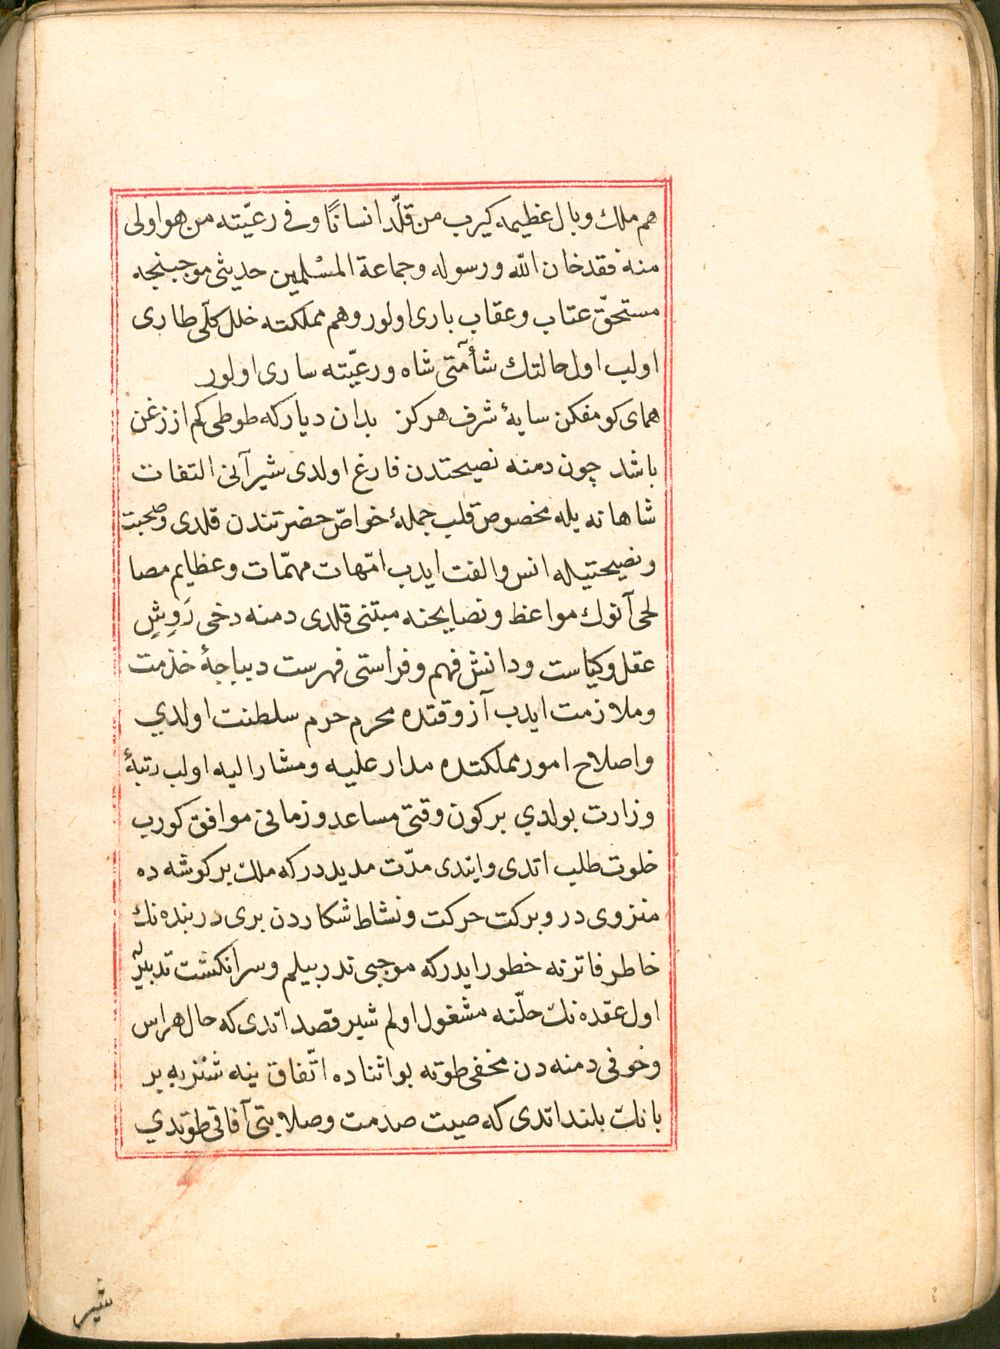 هم ملك وبال عظيمه كيرب من قلّد انسانًا وفى رعيّته من هو اولى
منه فقد خان الله ورسوله وجماعة المسْلمين حديثى موجبنجه
مستحقّ عتاب وعقاب بارى اولور وهم مملكته خلل كلّى طارى
اولب اول حالتك شأمتى شاه ورعيّته سارى اولور
هماى كو مفكن سايهٔ شرف هركز بدان ديار كه طوطى كم از زغن
باشد چون دمنه نصيحتدن فارغ اولدى شير آنى التفات
شاهانه يله مخصوص قلب جملهٔ خواصّ حضرتندن قلدى وصحبت
ونصيحتيله انس والفت ايدب امّهات مهمّات وعظايم مصا
لحى آنوك مواعظ ونصايحنه مبتنى قلدى دمنه دخى رَوِشِ
عقل وكياست ودانش فهم وفراستى فهرست ديباجهٔ خذمت
وملازمت ايدب آز وقتده محرم حرم سلطنت اولدي
واصلاح امور مملكتده مدار عليه ومشار اليه اولب رتبهٔ
وزارت بولدي بر كون وقتى مساعد وزمانى موافق كورب
خلوت طلب اتدى وايتدى مدّت مديد در كه ملك بر كوشه ده
منزوى در وبركت حركت ونشاط شكاردن برى در بنده نك
خاطر فاترنه خطور ايدر كه موجبى ندر بيلم وسرانكشت تدبيرله
اول عقده نك حلّنه مشغول اولم شير قصد اتدى كه حال هراس
وخوفى دمنه دن مخفى طوته بو اثناده اتّفاق ينه شنزبه بر
بانك بلند اتدى كه صيت صدمت وصلابتى آفاقى طوتدي
شير